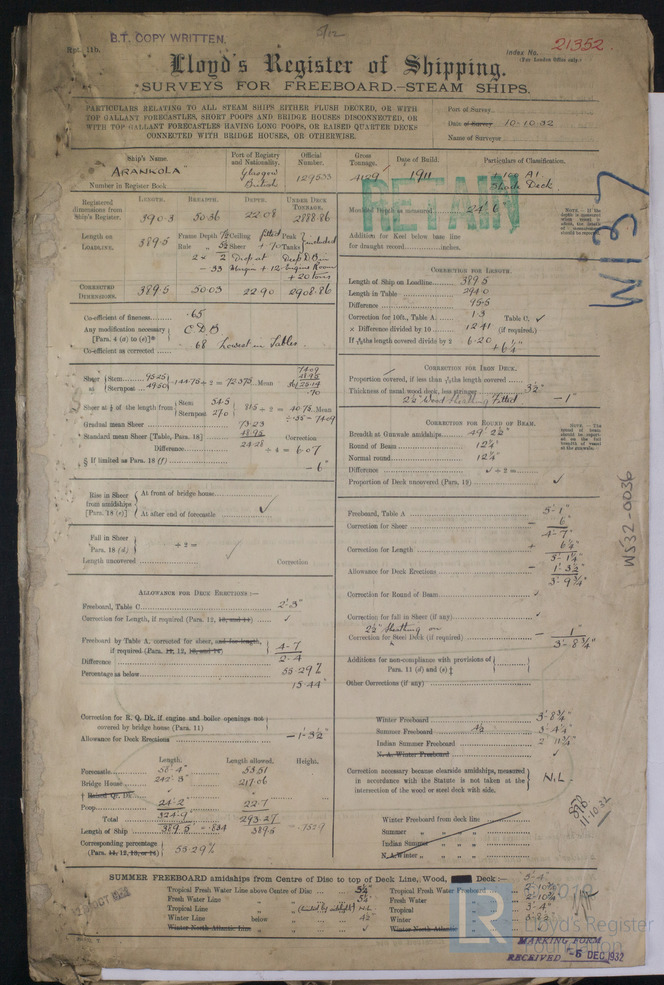 5/12
B.T. COPY WRITTEN.
Rpt. 11b.
Index No. 21352
(For London Office only)
Lloyd's Register of Shipping.
SURVEYS FOR FREEBOARD.—STEAM SHIPS.
PARTICULARS RELATING TO ALL STEAM SHIPS EITHER FLUSH DECKED, OR WITH
TOP GALLANT FORECASTLES, SHORT POOPS AND BRIDGE HOUSES DISCONNECTED, OR
WITH TOP GALLANT FORECASTLES HAVING LONG POOPS, OR RAISED QUARTER DECKS
CONNECTED WITH BRIDGE HOUSES, OR OTHERWISE.
Port of Survey
Date of Survey 10-10-32
Name of Surveyor
Ship's Name. Port of Registry and Nationality. Official Number. Gross Tonnage. Date of Build. Particulars of Classification.
ARANKOLA Glasgow British 129533 4129 1911 100 A1. Shade Deck
Number in Register Book
RETAIN
W137
WS32-0036
LENGTH. BREADTH. DEPTH. UNDER DECK TONNAGE.
Registered dimensions from Ship's Register. 390.3 50.36 22.08 2888.86
Length on LOADLINE. 389.5
CORRECTED DIMENSIONS. 389.5 50.03 22.90 2908.86
Moulded Depth as measured 24-6
Addition for Keel below base line
for draught record inches.
Co-efficient of fineness .65
Any modification necessary C.D.B
[Para. 4 (a) to (e)]*
Co-efficient as corrected .68 Lowest in Tables
CORRECTION FOR LENGTH.
Length of Ship on Loadline 389.5
Length in Table 294.0
Difference 95.5
Correction for 10ft., Table A. 1.3 Table C. ✓
× Difference divided by 10 12.41 (if required.)
If 6/10ths length covered divide by 2 6.20
+6¼"
CORRECTION FOR IRON DECK.
Proportion covered, if less than 7/10ths length covered
Thickness of usual wood deck, less stringer 3½"
2½" Wood Sheathing fitted — 1"
CORRECTION FOR ROUND OF BEAM.
Breadth at Gunwale amidships 49' 2½"
Round of Beam 12¼"
Normal round 12¼"
Difference ✓ ÷ 2 =
Proportion of Deck uncovered (Para. 19) ✓
Sheer at Stem 95.25
Sternpost 49.50
144.75 ÷ 2 = 72.375 Mean
Sheer at ⅛ of the length from Stem 54.5
Sternpost 27.0
81.5 ÷ 2 = 40.75 Mean
Gradual mean Sheer 73.23
Standard mean Sheer [Table, Para. 18] 48.95 Correction
Difference 24.28 ÷ 4 = 6.07
§ If limited as Para. 18 (f) — 6"
Rise in Sheer from amidships [Para. 18 (e)]
At front of bridge house
At after end of forecastle ✓
Fall in Sheer
Para. 18 (d.) ÷ 2 = ✓
Length uncovered Correction
ALLOWANCE FOR DECK ERECTIONS :—
Freeboard, Table C 2'.3"
Correction for Length, if required (Para. 12, 13, and 14) ✓
Freeboard by Table A, corrected for sheer, and for length,
if required (Para. 11, 12, 13, and 14) 4-7
Difference 2-4
Percentage as below 55.29%
15.44"
Correction for R. Q. Dk. if engine and boiler openings not
covered by bridge house (Para. 11)
Allowance for Deck Erections —1'-3½"
Length. Length allowed. Height.
Forecastle
Bridge House 217.06
Raised Qr. Dk
Poop 24'-2" 22.7
Total 324.9 293.27
Length of Ship 389.5 = .834 389.5 = .7529
Corresponding percentage
(Para. 11, 12, 13, or 14) 55.29%
Freeboard, Table A 5'-1"
Correction for Sheer — 6"
4-7"
Correction for Length + 6¼"
5'-1¼"
Allowance for Deck Erections — 1'-3½"
3'-9¾"
Correction for Round of Beam ✓
Correction for fall in Sheer (if any) ✓
2½" Sheathing on
Correction for Steel Deck (if required) — 1"
3'-8¾"
Additions for non-compliance with provisions of
Para. 11 (d) and (e) ‡
Other Corrections (if any)
Winter Freeboard 3'-8¾"
Summer Freeboard 4½ 3'-4¼"
Indian Summer Freeboard 2' 11¾"
N. A. Winter Freeboard ✓
Correction necessary because clearside amidships, measured
in accordance with the Statute is not taken at the
intersection of the wood or steel deck with side. NIL.
11.10.32
Winter Freeboard from deck line
Summer " " "
Indian Summer " " "
N. A. Winter " " "
SUMMER FREEBOARD amidships from Centre of Disc to top of Deck Line, Wood, Deck :— 3'-4"
Tropical Fresh Water Line above Centre of Disc 5½"
Fresh Water Line " " 5½"
Tropical Line " " NIL
Winter Line below " 4½"
Winter North Atlantic Line " ✓
Tropical Fresh Water Freeboard 2'-10½"
Fresh Water " 2'-10½"
Tropical " 3'-4"
Winter " 3'-8½"
Winter North Atlantic "
OCT 1932
LR
Lloyd's Register
Foundation
MARKING FORM
RECEIVED -5 DEC 1932